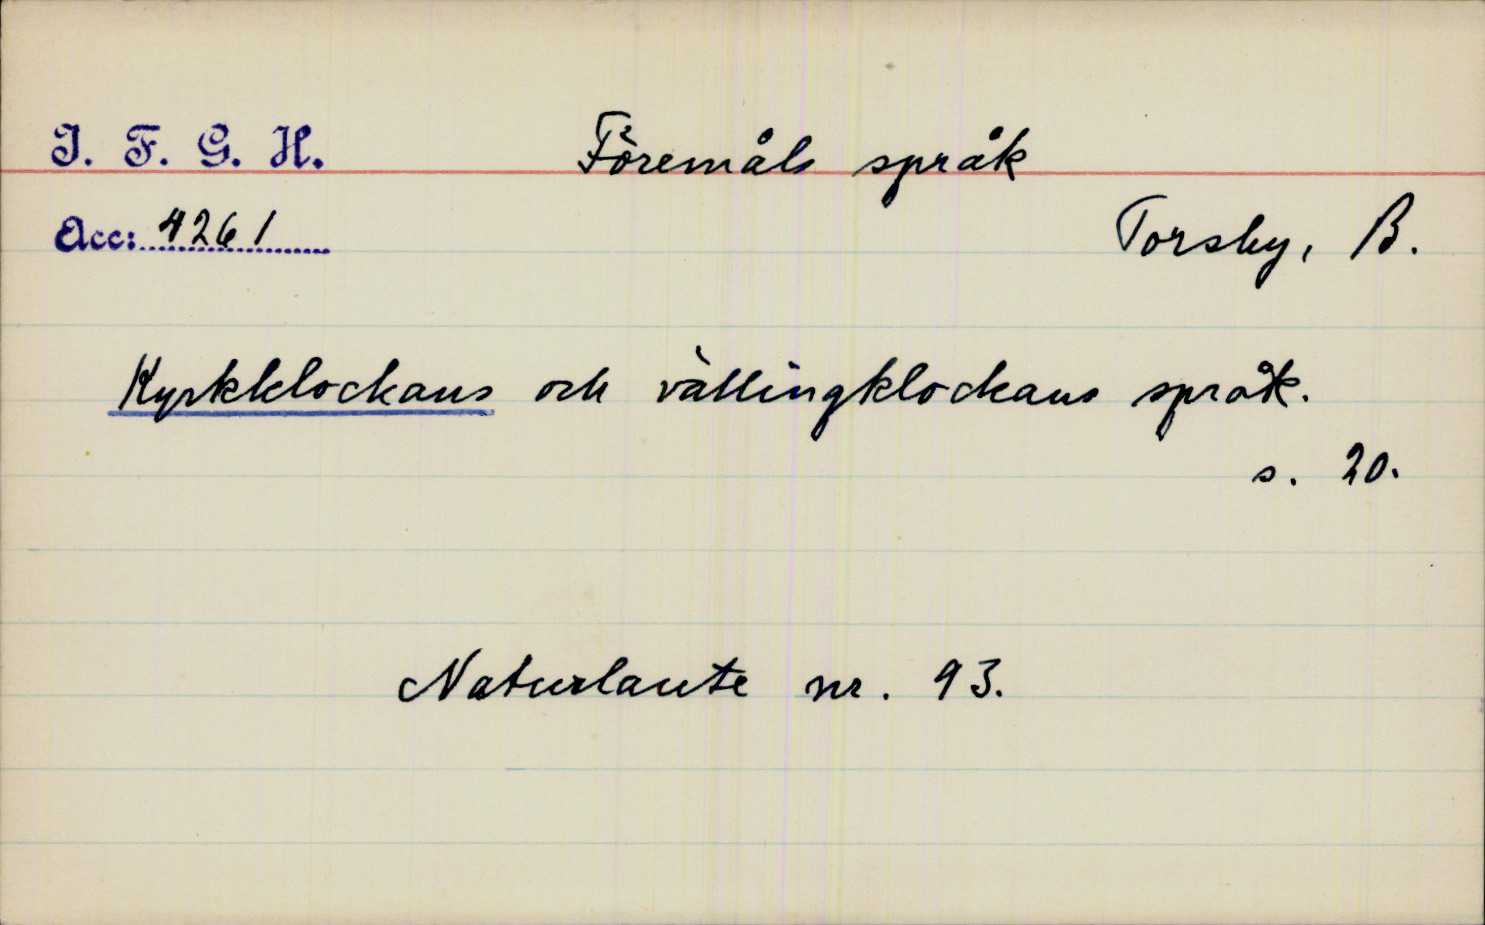 I. F. G. H.
Föremåls språk
Acc: 4261
Torsby, B.
Kyrkklockans och vällingklockans språk.
s. 20.
Naturlaute nr. 93.